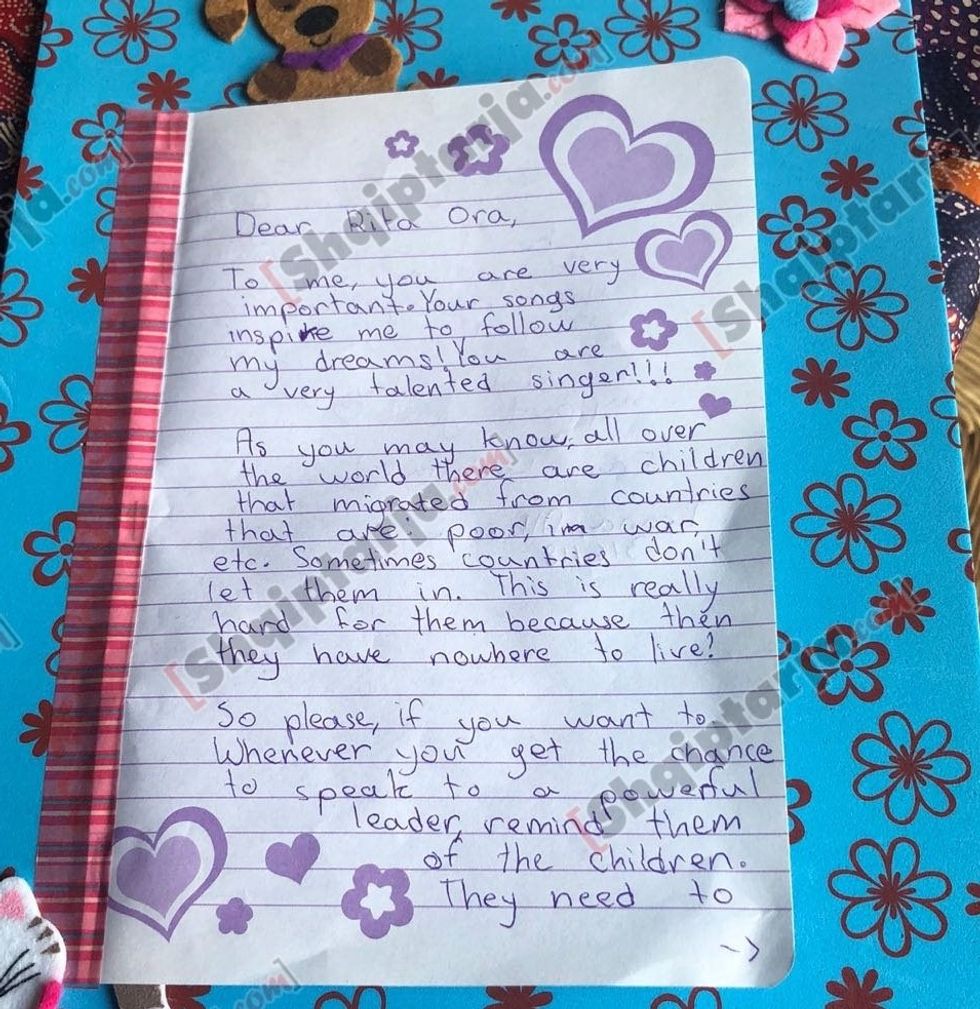 Dear Rita Ora,
To me, you are very
important. Your songs
inspire me to follow
my dreams! You are
a very talented singer!!!
As you may know, all over
the world there are children
that migrated from countries
that are: poor, in war,
etc. Sometimes countries don't
let them in. This is really
hard for them because then
they have nowhere to live!
So please, if you want to.
Whenever you get the chance
to speak to a powerful
leader, remind them
of the children.
They need to
->
[Shqiptarja.com]
[Shqiptarja.com]
[Shqiptarja.com]
[Shqiptarja.com]